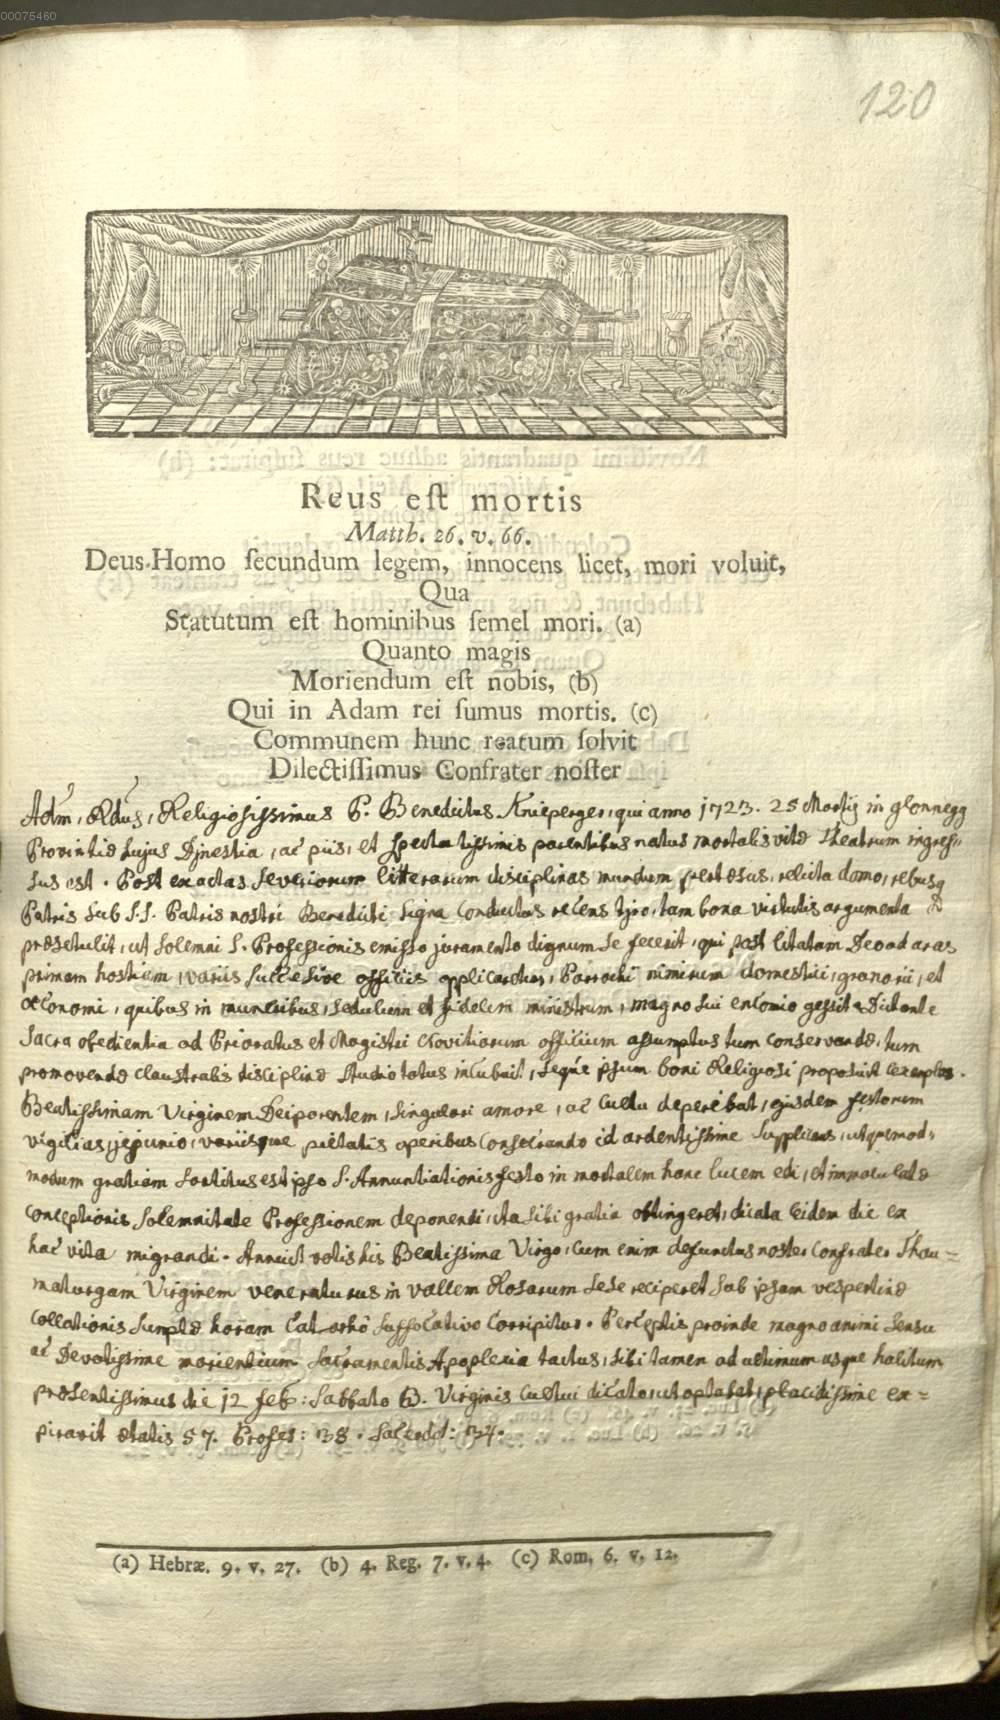 00075460
120
Reus eſt mortis
Matth. 26. v. 66.
Deus-Homo ſecundum legem, innocens licet, mori voluit,
Qua
Statutum eſt hominibus ſemel mori. (a)
Quanto magis
Moriendum eſt nobis, (b)
Qui in Adam rei ſumus mortis. (c)
Communem hunc reatum ſolvit
Dilectiſſimus Confrater noſter
Adm, Rdus, Religiosissimus P. Benedictus Knieperger, qui anno 1723. 25 Martij in glonnegg
Provintiæ hujus Dynestia, ac piis, et spectatissimis parentibus natus mortalis vitæ theatrum ingres„
sus est. Post exactas severiorum litterarum disciplinas mundum pertæsus, relicta domo, rebusq
Patris sub S.S. Patris nostri Benedicti signa conductus recens tyro, tam bona virtutis argumenta
præsetulit, ut solemni S. Professionis emisso juramento dignum se fecerit, qui post litatam Deo ad aras
primam hostiam, variis successive officiis applicaretur, Parochi nimirum domestici, granarii, et
œconomi, quibus in muneribus, sedulum et fidelem ministrum, magno sui encomio gessit. Dictante
sacra obedientia ad Prioratus et Magistri Novitiorum officium assumptus tum conservandæ, tum
promovendæ claustralis disciplinæ studio totus incubuit, seque ipsum boni Religiosi proposuit exemplar.
Beatissimam Virginem Deiparentem, singulari amore, ac cultu deperibat, ejusdem festorum
vigilias, jejunio, variisque pietatis operibus consecrando id ardentissime supplicans, ut quemad„
modum gratiam sortitus est ipso S. Annuntiationis festo in mortalem hanc lucem edi, et immaculatæ
conceptionis solemnitate Professionem deponendi, ita sibi gratia obtingeret, dicata eidem die ex
hac vita migrandi. Annuit votis his Beatissima Virgo, cum enim defunctus noster Confrater Thau=
maturgam Virginem veneraturus in vallem Rosarum sese reciperet sub ipsam vespertinæ
collationis sumptæ horam catarrho suffocativo corripitur. Perceptis proinde magno animi sensu
ac Devotissime morientium sacramentis Apoplexia tactus, sibi tamen ad ultimum usque halitum
præsentissimus die 12 feb: sabbato B. Virginis cultui dicato, ut optabat, placidissime ex=
piravit ætatis 57. Profes: 38. sacerdd: 34.
(a) Hebræ. 9. v. 27. (b) 4. Reg. 7. v. 4. (c) Rom, 6. v. 12.